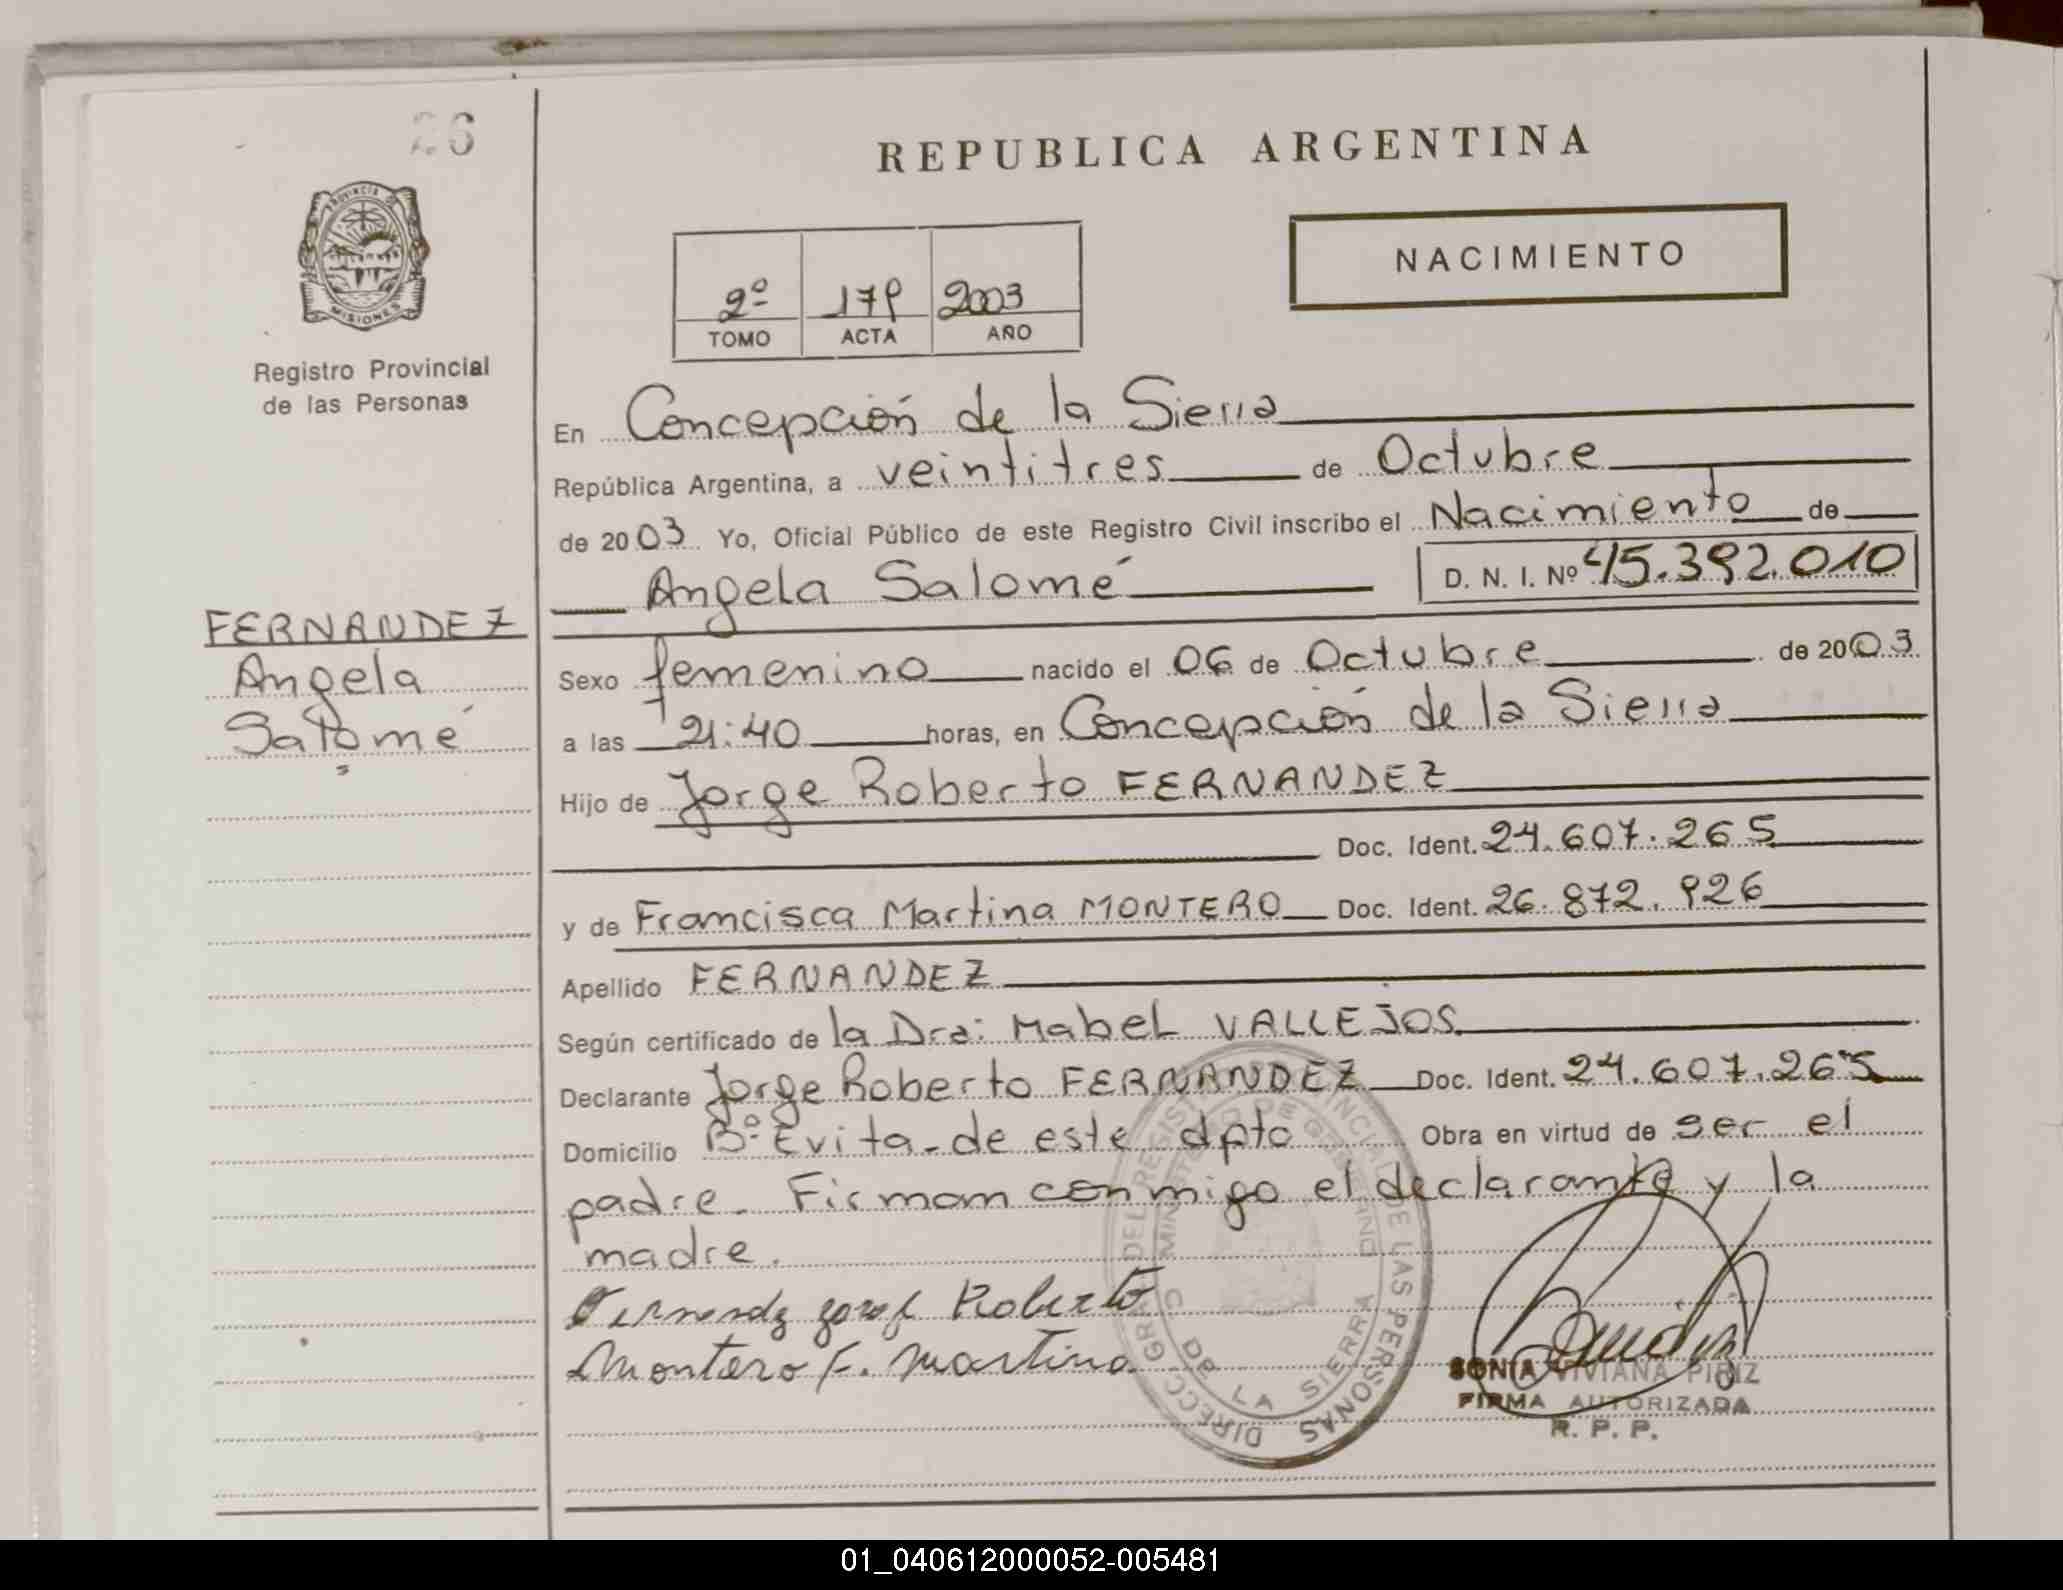 26
REPUBLICA ARGENTINA
NACIMIENTO
PROVINCIA DE MISIONES
Registro Provincial
de las Personas
2º 179 2003
TOMO ACTA AÑO
En Concepción de la Sierra
República Argentina, a veintitres de Octubre
de 2003 Yo, Oficial Público de este Registro Civil inscribo el Nacimiento de
Angela Salomé D. N. I. Nº 45.392.010
FERNANDEZ
Angela
Salomé
Sexo femenino nacido el 06 de Octubre de 2003
a las 21:40 horas, en Concepción de la Sierra
Hijo de Jorge Roberto FERNANDEZ
Doc. Ident. 24.607.265
y de Francisca Martina MONTERO Doc. Ident. 26.872.926
Apellido FERNANDEZ
Según certificado de la Dra: Mabel VALLEJOS
Declarante Jorge Roberto FERNANDEZ Doc. Ident. 24.607.265
Domicilio Bº Evita - de este dpto Obra en virtud de ser el
padre. Firman conmigo el declarante y la
madre.
Fernandez Jorge Roberto
Montero F. Martina
DIRECC. GRAL. DEL REGISTRO PROVINCIAL DE LAS PERSONAS
MINISTERIO DE GOBIERNO
C. DE LA SIERRA
SONIA VIVIANA PIRIZ
FIRMA AUTORIZADA
R. P. P.
01_040612000052-005481